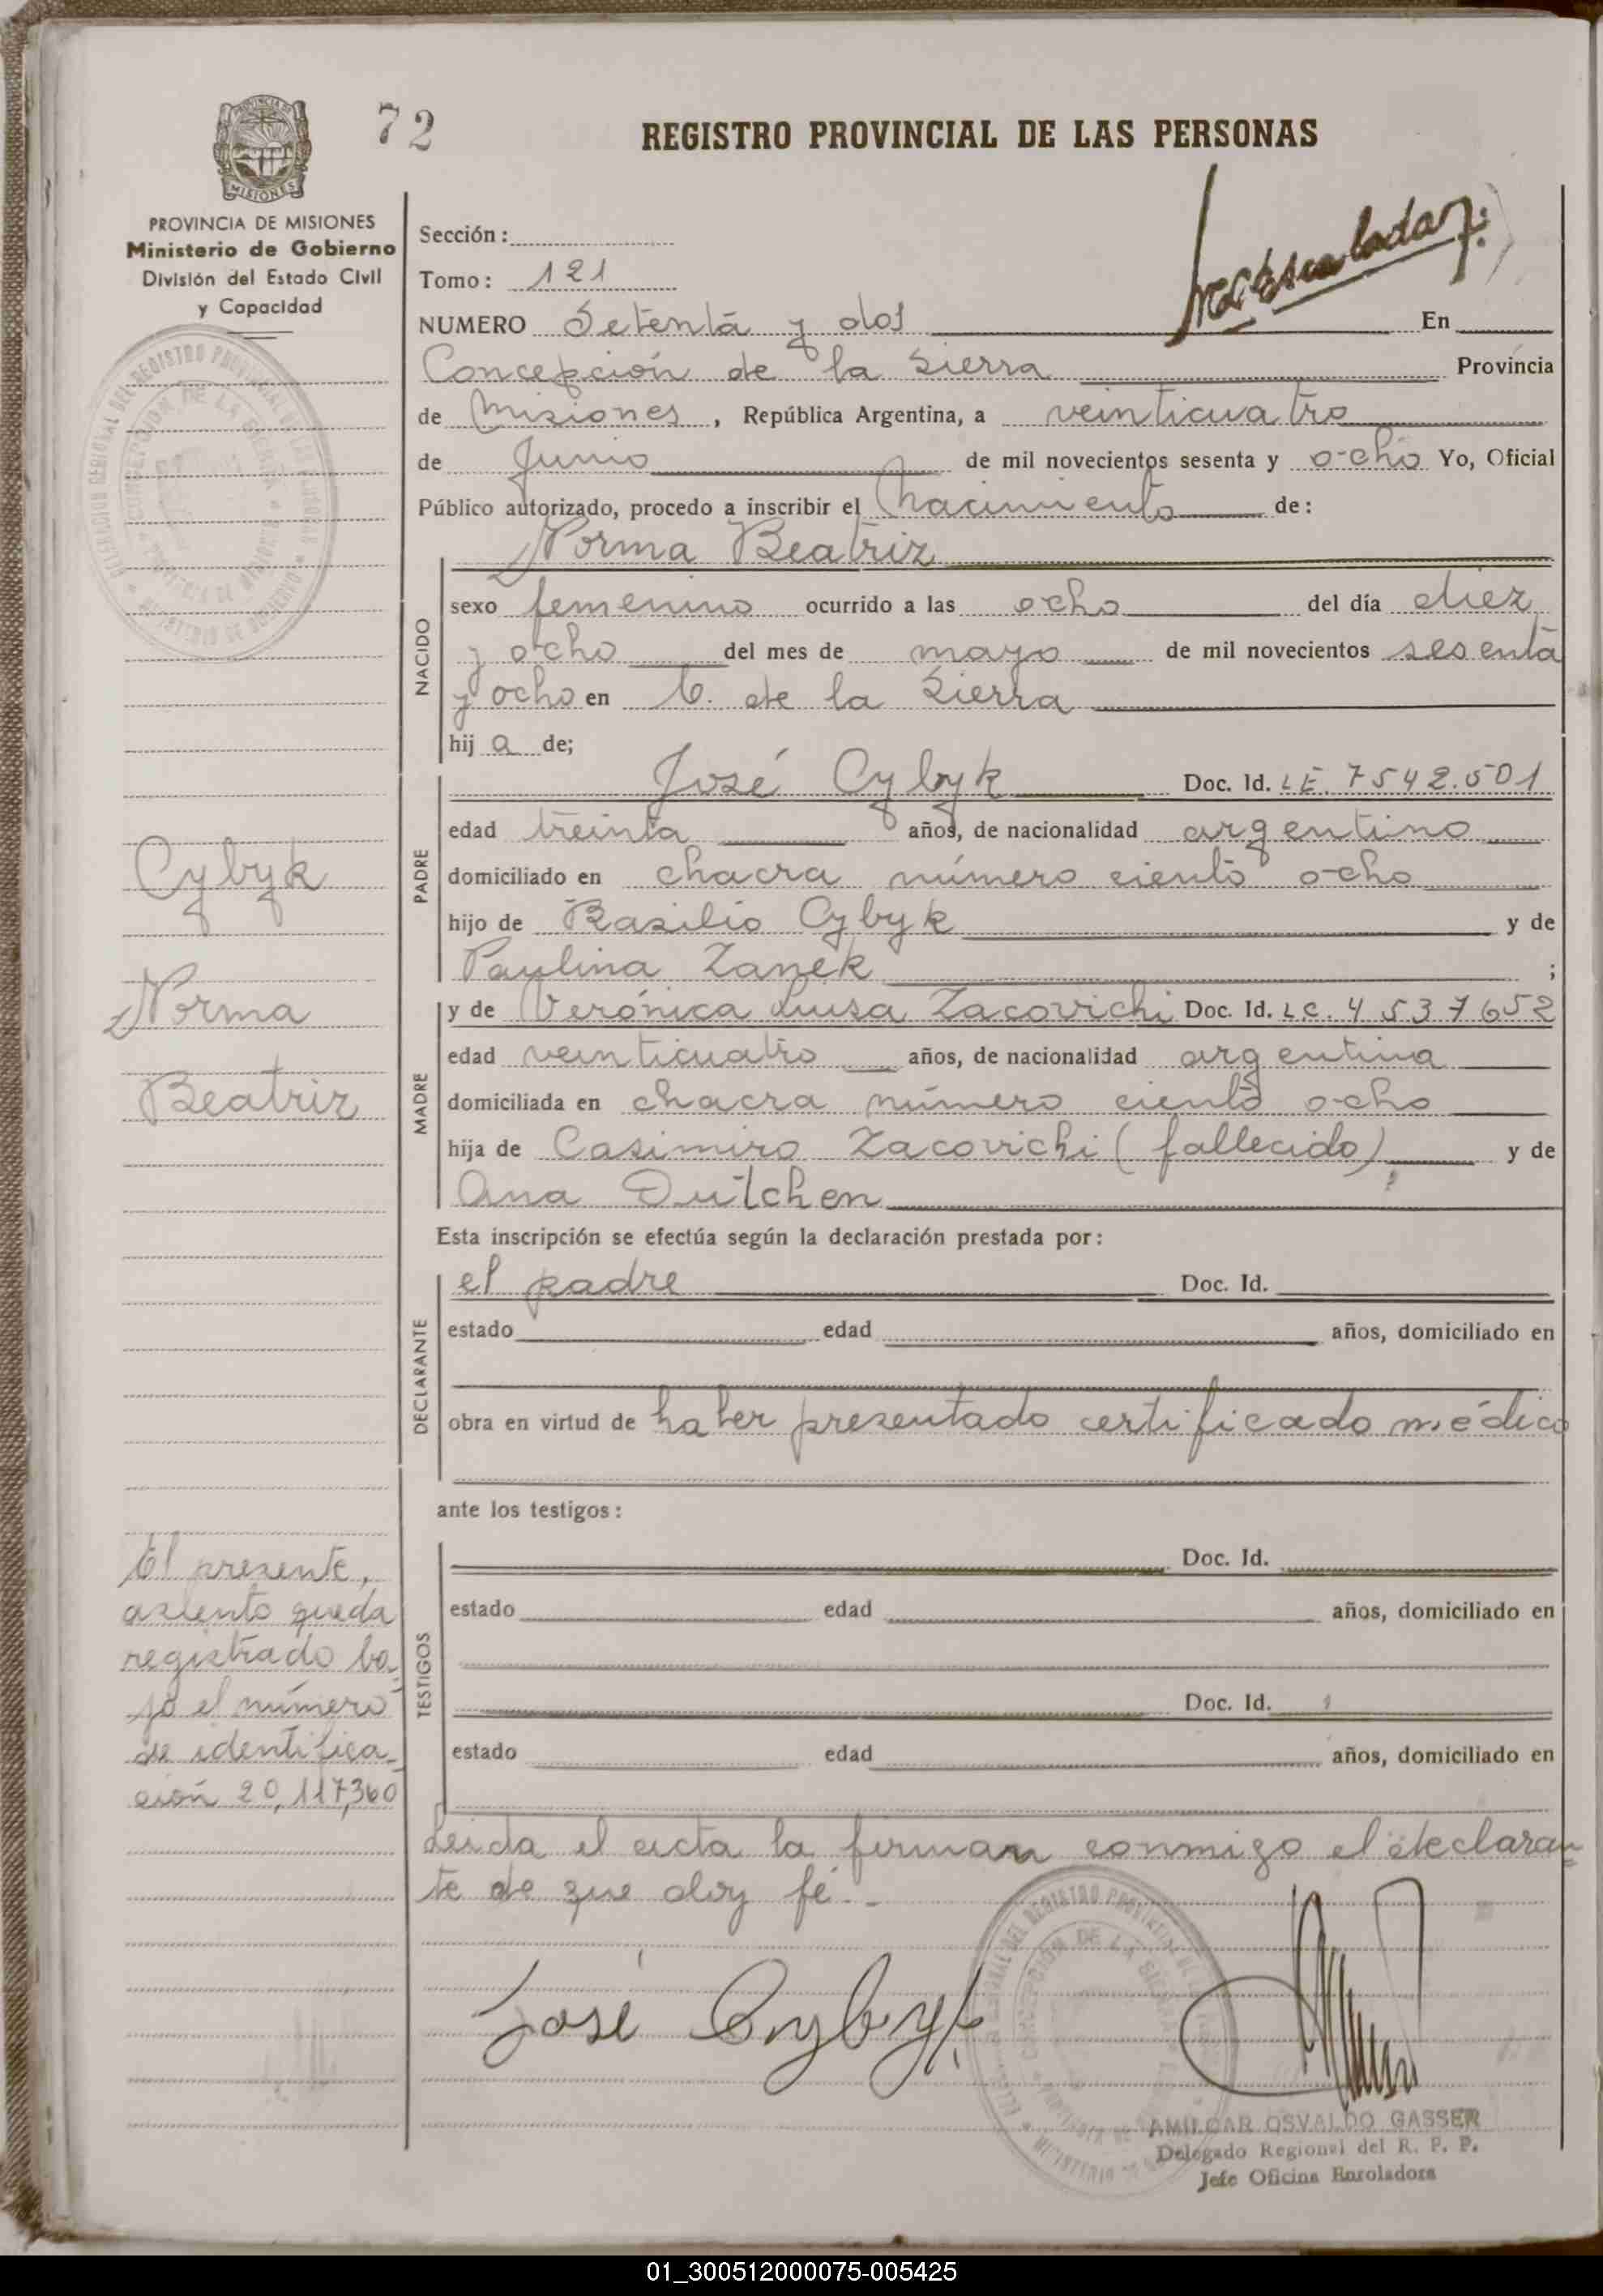 72
REGISTRO PROVINCIAL DE LAS PERSONAS
PROVINCIA DE MISIONES
Ministerio de Gobierno
División del Estado Civil
y Capacidad
Sección:
Tomo: 121
NUMERO Setenta y dos En
Concepción de la Sierra Provincia
de Misiones, República Argentina, a veinticuatro
de Junio de mil novecientos sesenta y ocho Yo, Oficial
Público autorizado, procedo a inscribir el Nacimiento de:
Norma Beatriz
NACIDO
sexo femenino ocurrido a las ocho del día diez
y ocho del mes de mayo de mil novecientos sesenta
y ocho en C. de la Sierra
hij a de;
PADRE
José Cybyk Doc. Id. LE. 7542.501
edad treinta años, de nacionalidad argentino
domiciliado en chacra número ciento ocho
hijo de Basilio Cybyk y de
Paulina Zanek ;
MADRE
y de Verónica Luisa Zacovichi Doc. Id. L.C. 4537652
edad veinticuatro años, de nacionalidad argentina
domiciliada en chacra número ciento ocho
hija de Casimiro Zacovichi (fallecido) y de
Ana Dutchen
Esta inscripción se efectúa según la declaración prestada por:
DECLARANTE
el padre Doc. Id.
estado edad años, domiciliado en
obra en virtud de haber presentado certificado médico
ante los testigos:
TESTIGOS
Doc. Id.
estado edad años, domiciliado en
Doc. Id.
estado edad años, domiciliado en
Leida el acta la firman conmigo el declaran-
te de que doy fé.-
José Cybyk
AMILCAR OSVALDO GASSER
Delegado Regional del R. P. P.
Jefe Oficina Enroladora
Cybyk
Norma
Beatriz
El presente,
asiento queda
registrado ba-
jo el número
de identifica-
ción 20,117,360
01_300512000075-005425